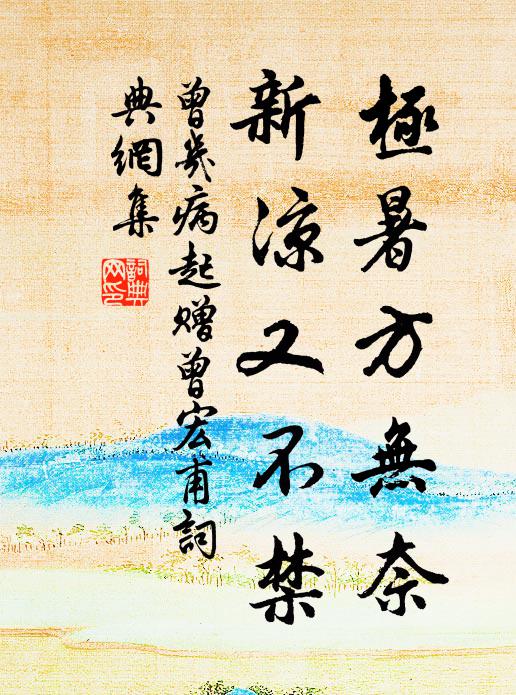 極暑方無奈
新涼又不禁
曾幾病起贈曾宏甫詞
典網集
詞典
网印